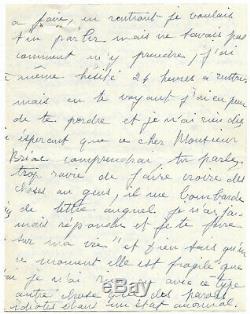 a faire, en rentrant je voulais
t'en parler mais ne savais pas
comment m'y prendre, j'ai
meme hésité 24 heures a rentrer
mais en te voyant j'ai eu peur
de te perdre et je n'ai rien dis
esperant que ce cher Monsieur
comprendrai
trop ravie de faire croire des
choses au gens, il me bombarde
de lettre auquel je n'ai fai
mais répondre et je te jure
sur ma vie" et Dieu sais qu'en
ce moment elle est fragile que
je n'ai avec ce type
autre chose que des paroles
idiotes dans un état anormal.